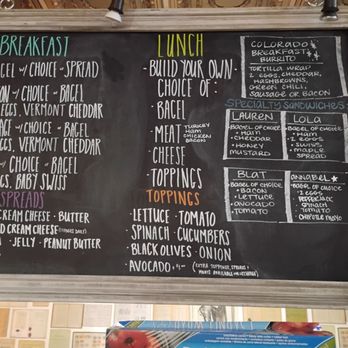 BREAKFAST
GEL w/ CHOICE of SPREAD
ON w/ CHOICE of BAGEL
EGGS, VERMONT CHEDDAR
AGE w/ CHOICE of BAGEL
EGGS, VERMONT CHEDDAR
w/ CHOICE of BAGEL
EGGS, BABY SWISS
SPREADS
CREAM CHEESE • BUTTER
D CREAM CHEESE
• JELLY • PEANUT BUTTER
LUNCH
- BUILD YOUR OWN
CHOICE OF:
- BAGEL
- MEAT TURKEY HAM CHICKEN BACON
- CHEESE
- TOPPINGS
TOPPINGS
• LETTUCE • TOMATO
• SPINACH • CUCUMBERS
• BLACK OLIVES • ONION
• AVOCADO
COLORADO
BREAKFAST
BURRITO
TORTILLA WRAP
2 EGGS, CHEDDAR,
HASHBROWNS,
GREEN CHILI,
SAUSAGE OR BACON
SPECIALTY SANDWICHES
LAUREN
• BAGEL OF CHOICE
• HAM
• CHEDDAR
• HONEY
MUSTARD
LOLA
• BAGEL OF CHOICE
• HAM
• EGG
• SWISS
• MAPLE
SPREAD
BLAT
• BAGEL OF CHOICE
• BACON
• LETTUCE
• AVOCADO
• TOMATO
ANNABEL
• BAGEL OF CHOICE
• 2 EGGS
• PEPPERJACK
• SPINACH
• TOMATO
• CHIPOTLE MAYO